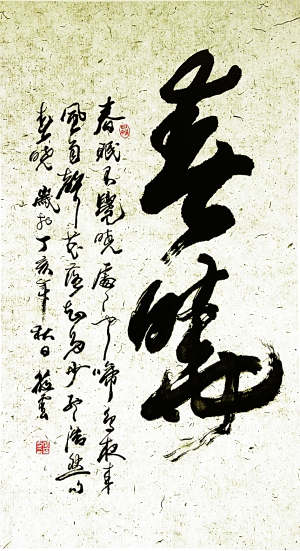 春晓
春眠不觉晓处处闻啼鸟夜来
风雨声花落知多少孟浩然诗
春晓岁於丁亥年秋日